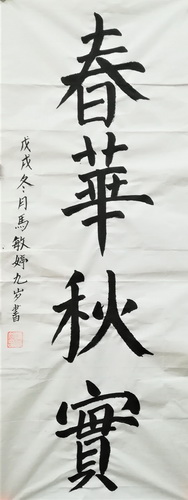 春華秋實
戊戌冬月馬敏婷九岁書